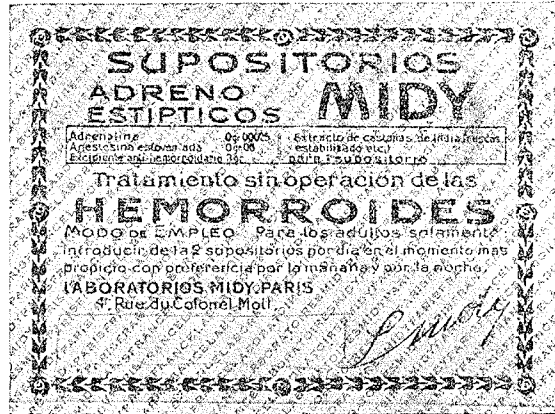 SUPOSITORIOS
ADRENO
ESTIPTICOS
MIDY
Adrenalina 0g 00025
Anestesina estovainada
Excipiente anti-hemorroidario
Extracto de castañas de India frescas
estabilizado etc.
para 1 supositorio
Tratamiento sin operación de las
HEMORROIDES
MODO DE EMPLEO Para los adultos solamente
introducir de 1 a 2 supositorios por dia en el momento mas
propicio con preferencia por la mañana y por la noche.
LABORATORIOS MIDY. PARIS
4, Rue du Colonel Moll